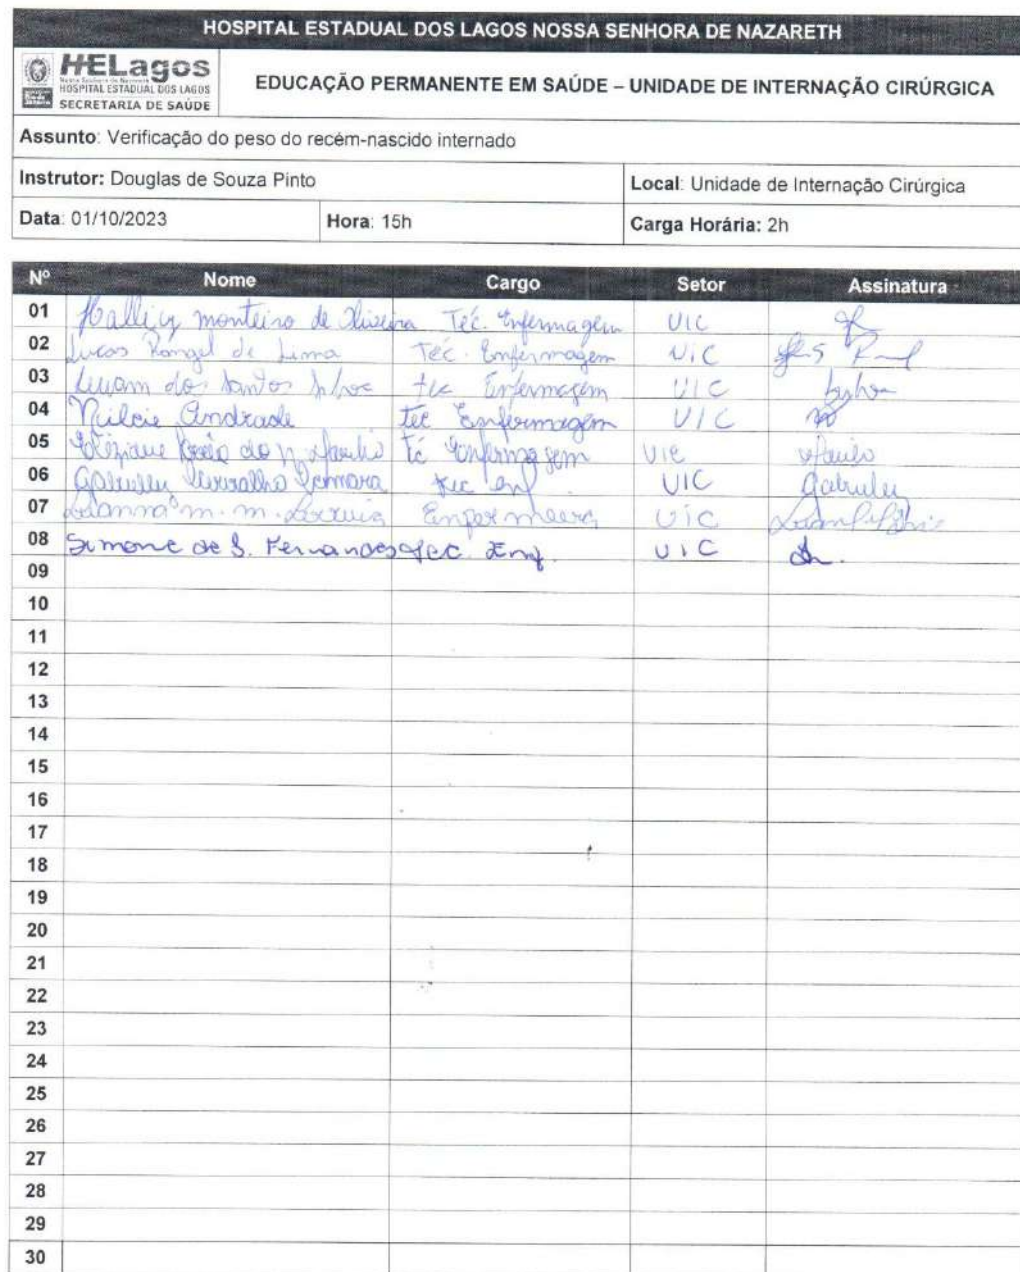 HOSPITAL ESTADUAL DOS LAGOS NOSSA SENHORA DE NAZARETH
HELagos
Nossa Senhora de Nazareth
HOSPITAL ESTADUAL DOS LAGOS
SECRETARIA DE SAÚDE
EDUCAÇÃO PERMANENTE EM SAÚDE – UNIDADE DE INTERNAÇÃO CIRÚRGICA
Assunto: Verificação do peso do recém-nascido internado
Instrutor: Douglas de Souza Pinto Local: Unidade de Internação Cirúrgica
Data: 01/10/2023 Hora: 15h Carga Horária: 2h
Nº Nome Cargo Setor Assinatura
01 monteiro de Oliveira Téc. Enfermagem UIC
02 Lucas Rangel de Lima Téc. Enfermagem UIC
03 dos Santos Enfermagem UIC
04 Andrade tec Enfermagem UIC
05 do Enfermagem UIC
06 Carvalho enf UIC
07 m. m. UIC
08 Simone de S. Fernandes Tec. Enf. UIC
09
10
11
12
13
14
15
16
17
18
19
20
21
22
23
24
25
26
27
28
29
30